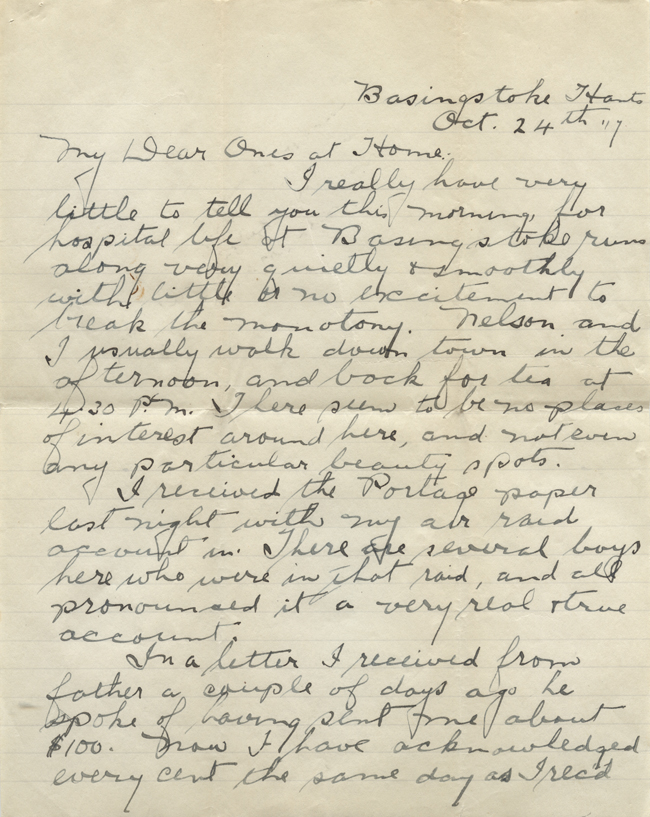 Basingstoke Hants
Oct. 24th "17
My Dear Ones at Home.
I really have very
little to tell you this morning, for
hospital life at Basingstoke runs
along very quietly & smoothly
with little or no excitement to
break the monotony. Nelson and
I usually walk down town in the
afternoon, and back for tea at
4.30 P.m. There seem to be no places
of interest around here, and not even
any particular beauty spots.
I received the Portage paper
last night with my air raid
account in. There are several boys
here who were in that raid, and all
pronounced it a very real & true
account.
In a letter I received from
father a couple of days ago he
spoke of having sent me about
$100. Now I have acknowledged
every cent the same day as I rec'd